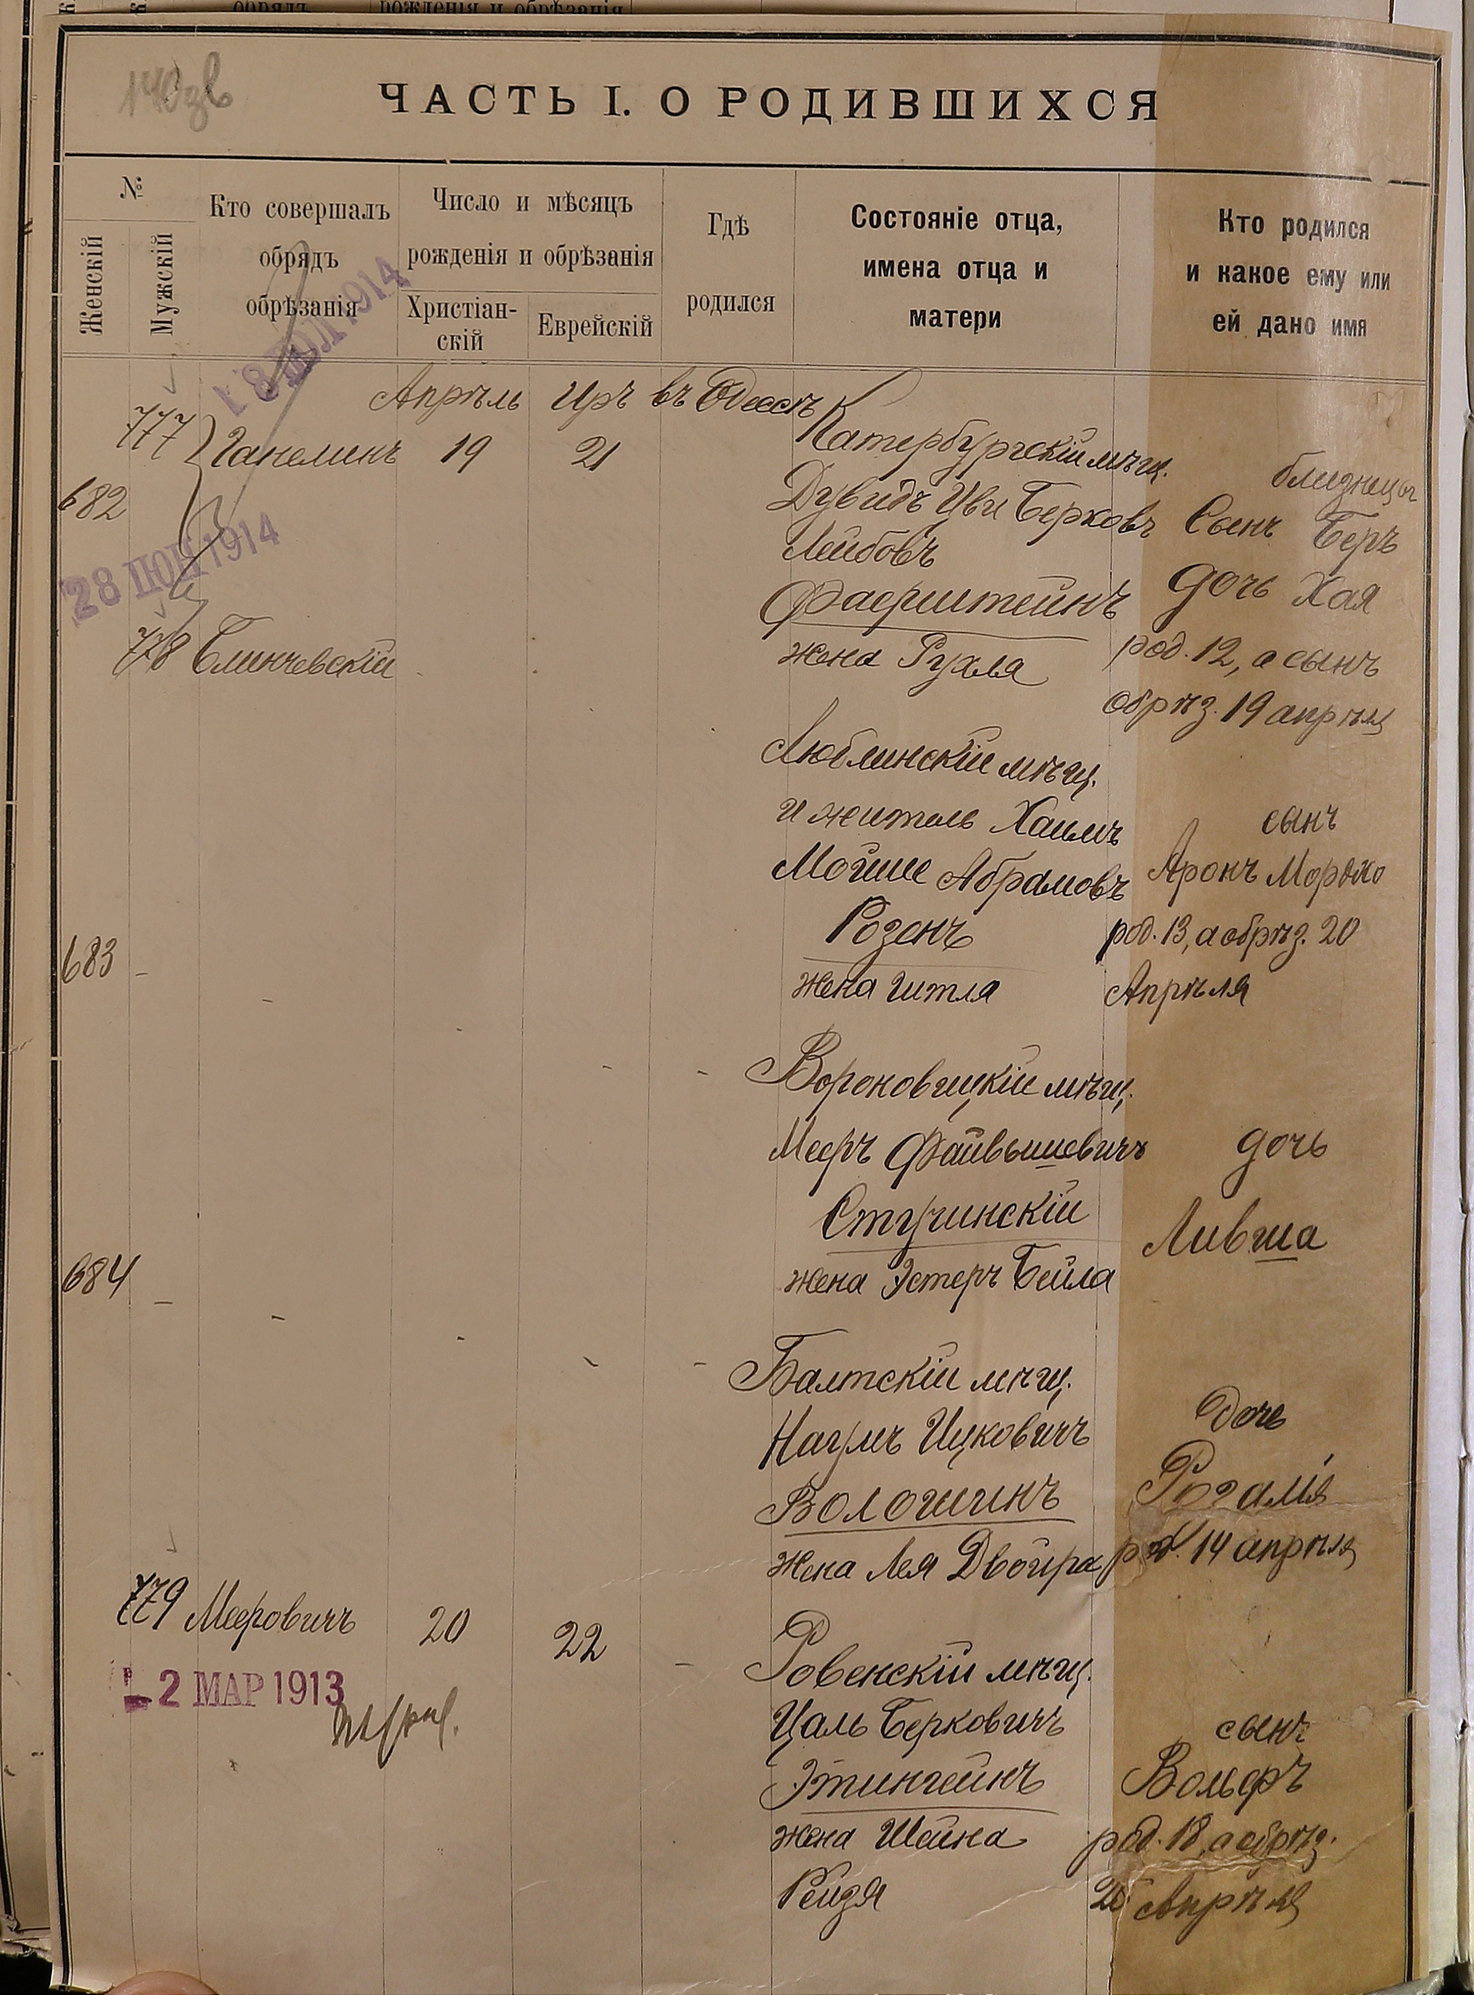 обрядъ рожденія и обрѣзанія
140зв
ЧАСТЬ I. О РОДИВШИХСЯ
№
Женскій
Мужскій
Кто совершалъ
обрядъ
обрѣзанія
Число и мѣсяцъ
рожденія и обрѣзанія
Христіан-
скій
Еврейскій
Гдѣ
родился
Состояніе отца,
имена отца и
матери
Кто родился
и какое ему или
ей дано имя
Апрѣль Иръ въ Одессѣ
777 Ганелинъ 19 21
682
28 ІЮЛ 1914
Катербургскій мѣщ.
Дувидъ Цви Берковъ
Лейбовъ
Фаерштейнъ
жена Рухля
близнецы
Сынъ Беръ
дочь Хая
род. 12, а сынъ
обрѣз. 19 апрѣля
778 Блинчевскій
Люблинскій мѣщ.
и житель Хаимъ
Мойше Абрамовъ
Розенъ
жена Гитля
сынъ
Аронъ Мордко
род. 13, а обрѣз. 20
Апрѣля
683 - - - -
Вороновицкій мѣщ.
Мееръ Файвышевичъ
Стучинскій
жена Эстеръ Бейла
дочь
Ливша
684 - - - - -
Балтскій мѣщ.
Нагумъ Ицковичъ
Волошинъ
жена Лея Двойра
дочь
Розалія
род. 14 апрѣля
779 Мееровичъ 20 22 -
2 МАР 1913
Ровенскій мѣщ.
Цаль Берковичъ
Этингейнъ
жена Шейна
Рейзя
сынъ
Вольфъ
род. 18, а обрѣз.
Апрѣля